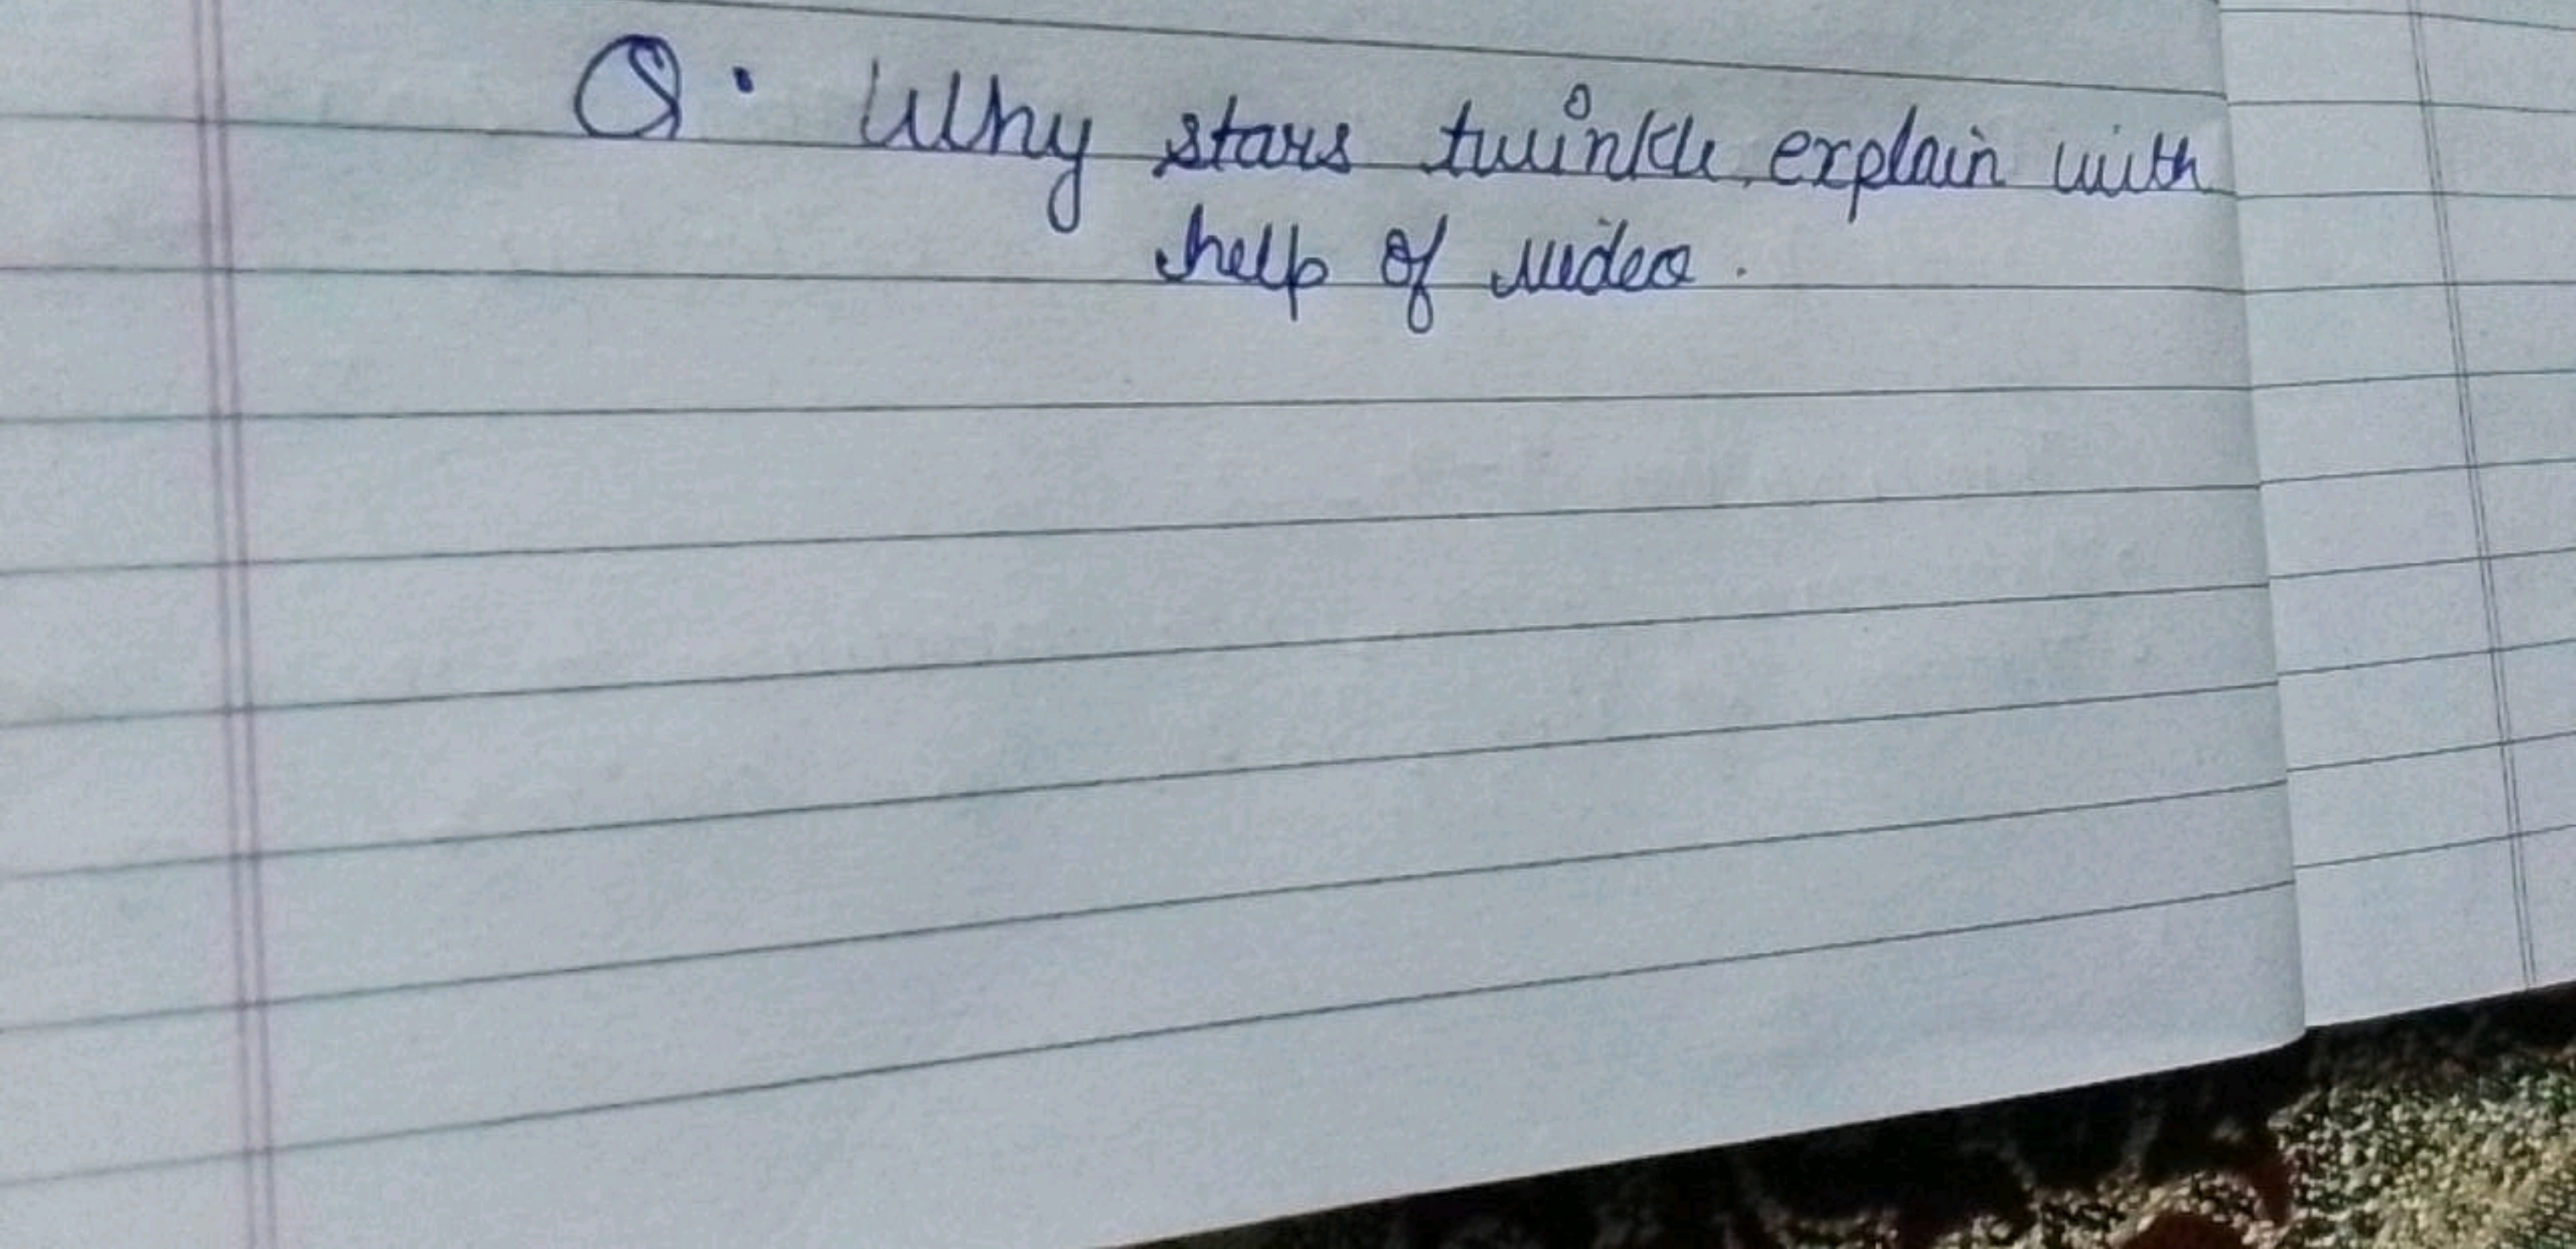 Q. Why stars twinkle, explain with
help of video.